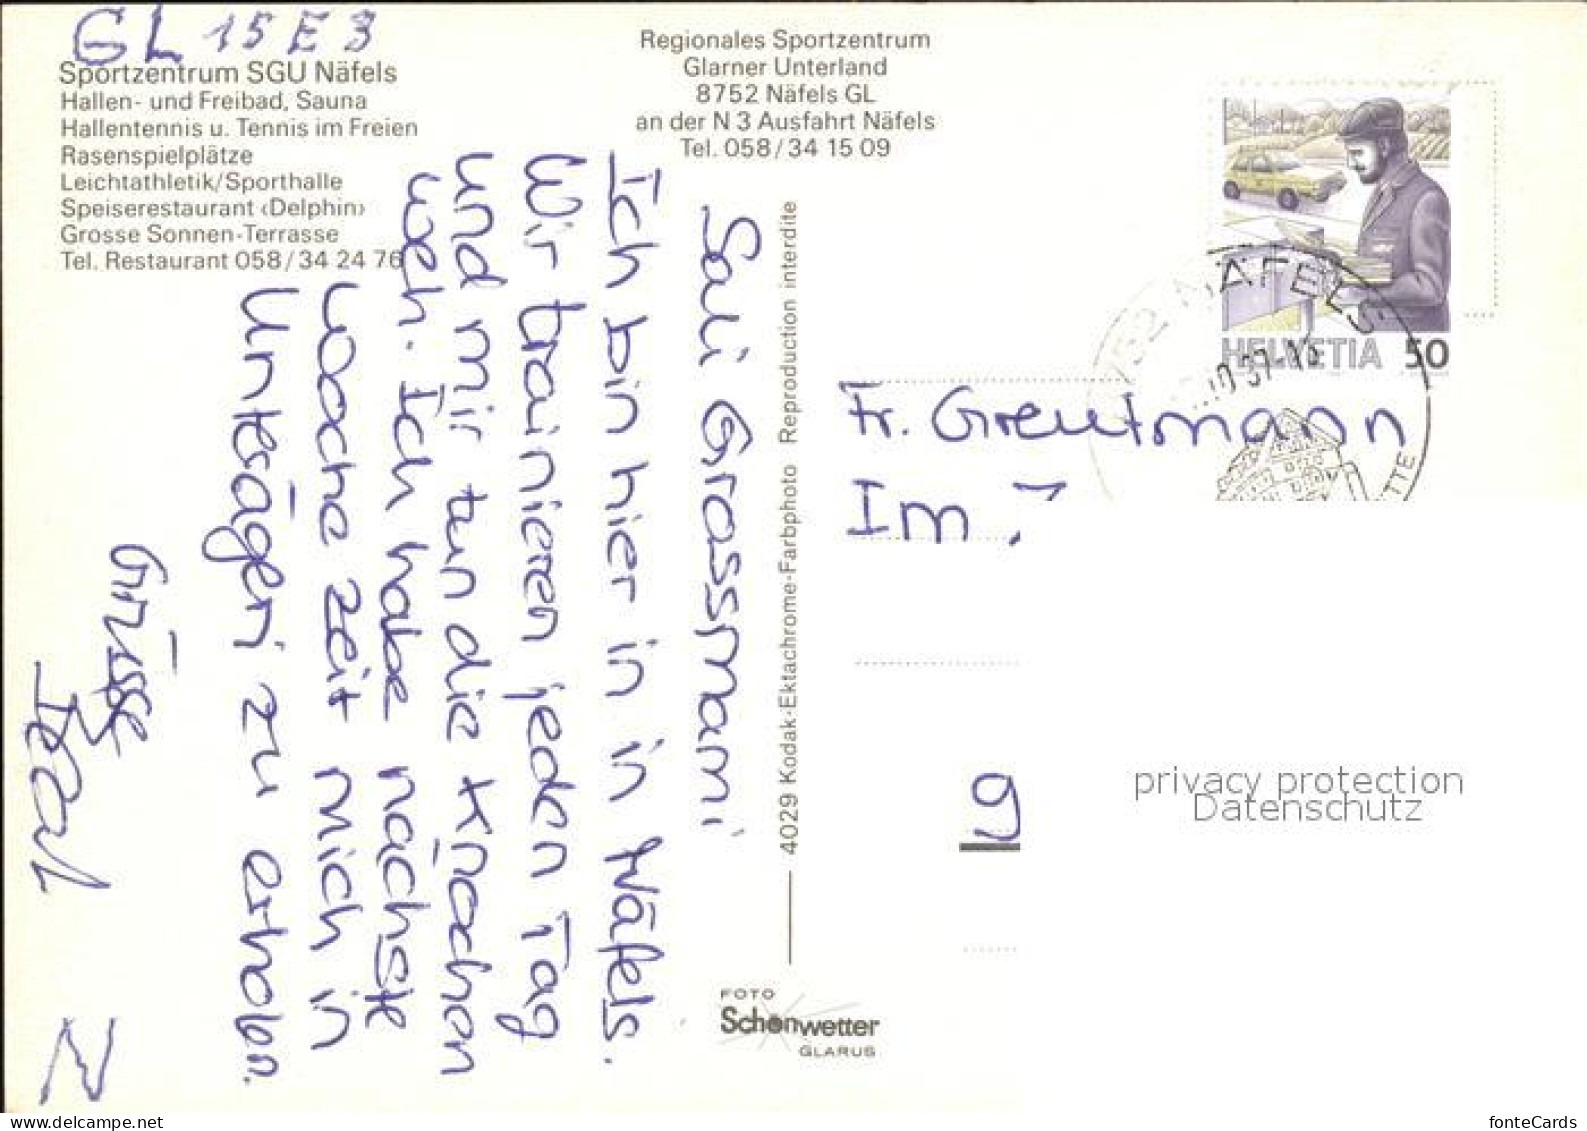 GL 15 E 3
Sportzentrum SGU Näfels
Hallen- und Freibad, Sauna
Hallentennis u. Tennis im Freien
Rasenspielplätze
Leichtathletik/Sporthalle
Speiserestaurant ‹Delphin›
Grosse Sonnen-Terrasse
Tel. Restaurant 058/34 24 76
Regionales Sportzentrum
Glarner Unterland
8752 Näfels GL
an der N 3 Ausfahrt Näfels
Tel. 058/34 15 09
Sali Grossmami
Ich bin hier in in Näfels.
Wir trainieren jeden Tag
und mir tun die Knochen
weh. Ich habe nächste
Woche Zeit mich in
Unterägeri zu erholen.
Grüsse
N
4029 Kodak-Ektachrome-Farbphoto Reproduction interdite
FOTO
Schönwetter
GLARUS
HELVETIA 50
NÄFELS
Fr. Greutmann
Im
9
privacy protection
Datenschutz
fonteCards